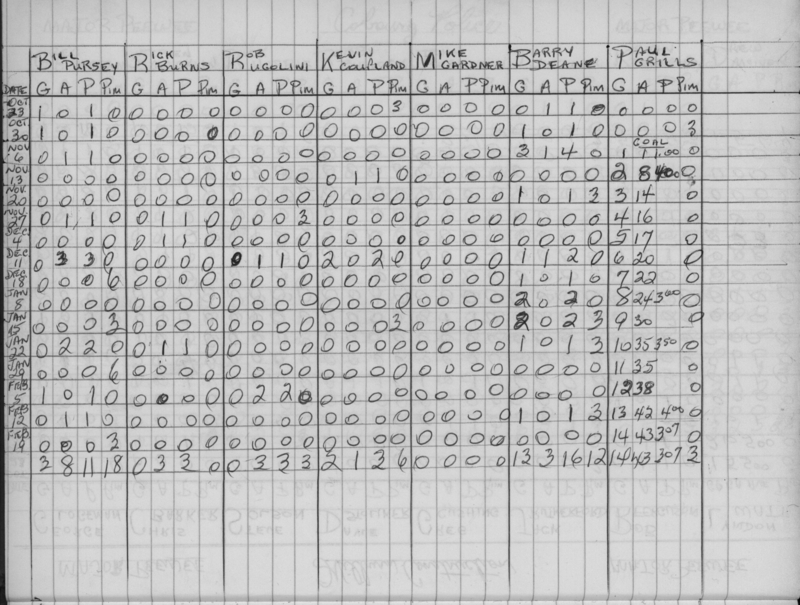 BILL PURSEY RICK BURNS ROB UGOLINI KEVIN COUPLAND MIKE GARDNER BARRY DEANE PAUL GRILLS
DATE G A P PIM G A P PIM G A P PIM G A P PIM G A P PIM G A P PIM G A P PIM
OCT 23 1 0 1 0 0 0 0 0 0 0 0 0 0 0 0 3 0 0 0 0 0 1 1 0 0 0 0 0
OCT 30 1 0 1 0 0 0 0 0 0 0 0 0 0 0 0 0 0 0 0 0 1 0 1 0 0 0 0 3
NOV 6 0 1 1 0 0 0 0 0 0 0 0 0 0 0 0 0 0 0 0 0 3 1 4 0 1 GOAL 11.00 0
NOV 13 0 0 0 0 0 0 0 0 0 0 0 0 0 1 1 0 0 0 0 0 0 0 0 0 2 8 400 0
NOV 20 0 0 0 0 0 0 0 0 0 0 0 0 0 0 0 0 0 0 0 0 1 0 1 3 3 14 0
NOV 27 0 1 1 0 0 1 1 0 0 0 0 3 0 0 0 0 0 0 0 0 0 0 0 0 4 16 0
DEC 4 0 0 0 0 0 1 1 0 0 0 0 0 0 0 0 0 0 0 0 0 0 0 0 0 5 17 0
DEC 11 0 3 3 0 0 0 0 0 0 1 1 0 2 0 2 0 0 0 0 0 1 1 2 0 6 20 0
DEC 18 0 0 0 6 0 0 0 0 0 0 0 0 0 0 0 0 0 0 0 0 1 0 1 0 7 22 0
JAN 8 0 0 0 0 0 0 0 0 0 0 0 0 0 0 0 0 0 0 0 0 2 0 2 0 8 24 300 0
JAN 15 0 0 0 3 0 0 0 0 0 0 0 0 0 0 0 3 0 0 0 0 2 0 2 3 9 30 0
JAN 22 0 2 2 0 0 1 1 0 0 0 0 0 0 0 0 0 0 0 0 0 1 0 1 3 10 35 350 0
JAN 29 0 0 0 6 0 0 0 0 0 0 0 0 0 0 0 0 0 0 0 0 0 0 0 0 11 35 0
FEB 5 1 0 1 0 0 0 0 0 0 2 2 0 0 0 0 0 0 0 0 0 0 0 0 0 12 38 0
FEB 12 0 1 1 0 0 0 0 0 0 0 0 0 0 0 0 0 0 0 0 0 1 0 1 3 13 42 400 0
FEB 19 0 0 0 3 0 0 0 0 0 0 0 0 0 0 0 0 0 0 0 0 0 0 0 0 14 43 307 0
3 8 11 18 0 3 3 0 0 3 3 3 2 1 3 6 0 0 0 0 13 3 16 12 14 43 307 3